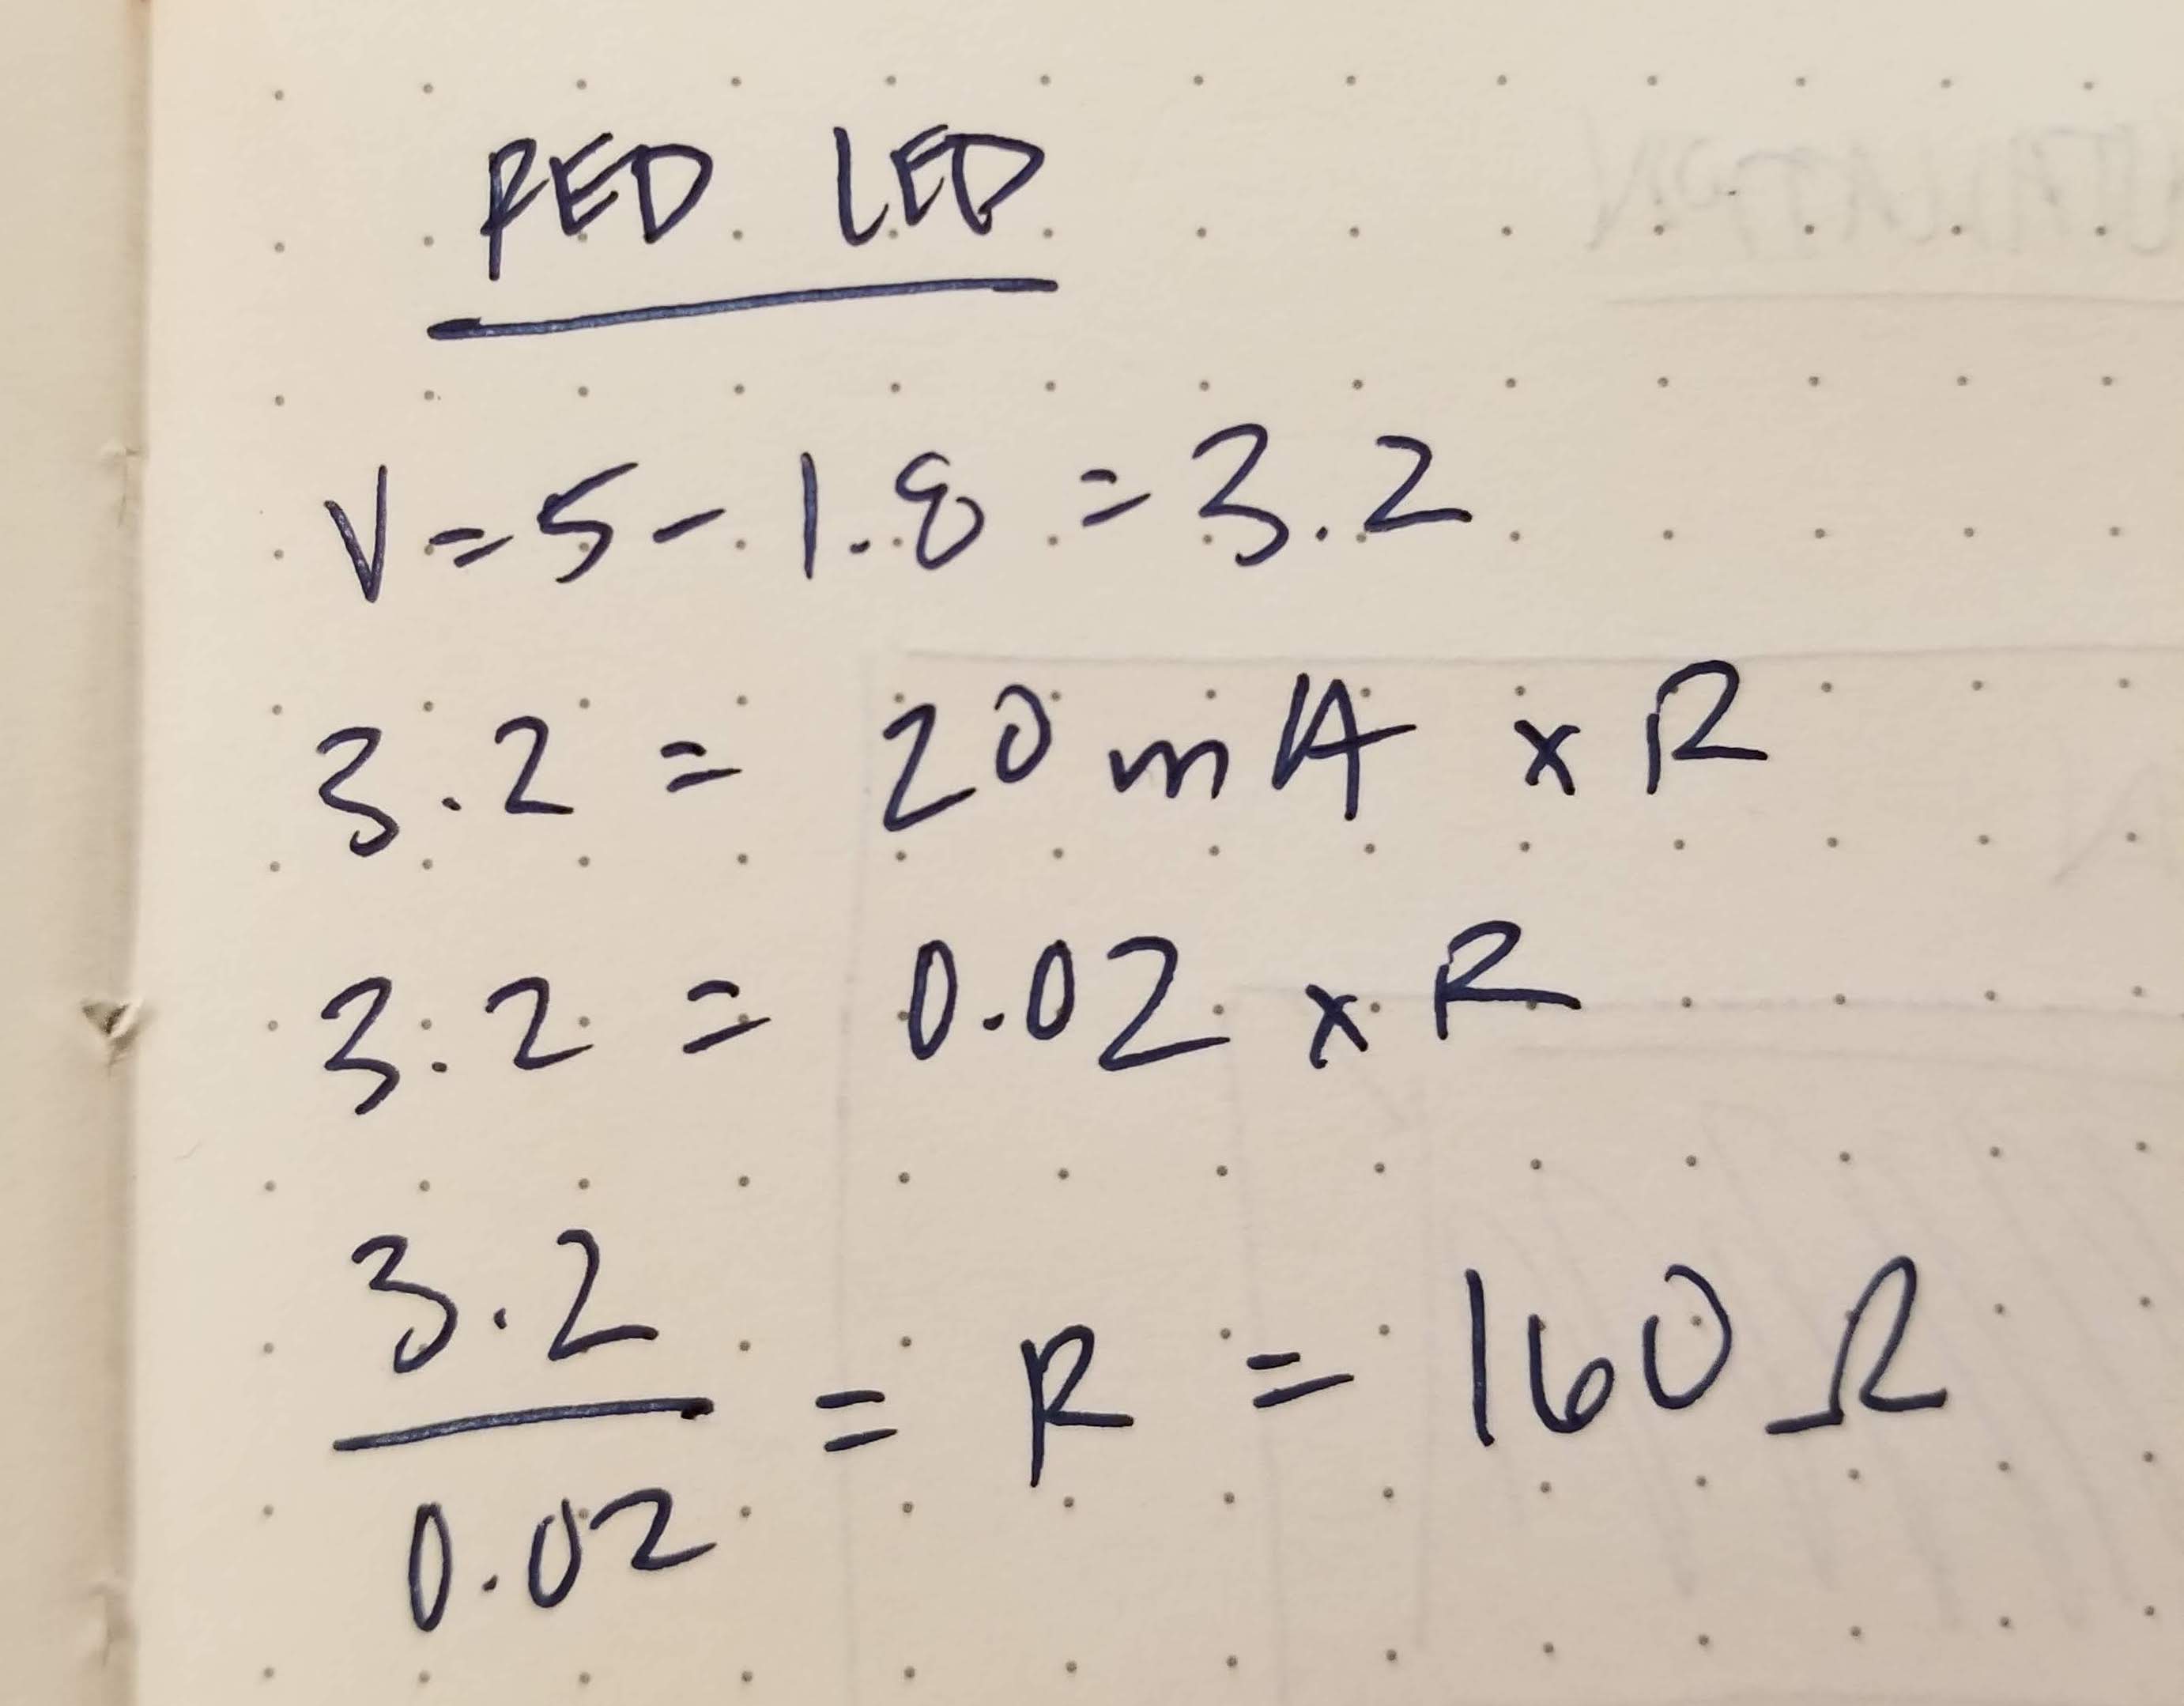 RED LED
V = 5 - 1.8 = 3.2
3.2 = 20 mA x R
3.2 = 0.02 x R
3.2
0.02
= R = 160 Ω